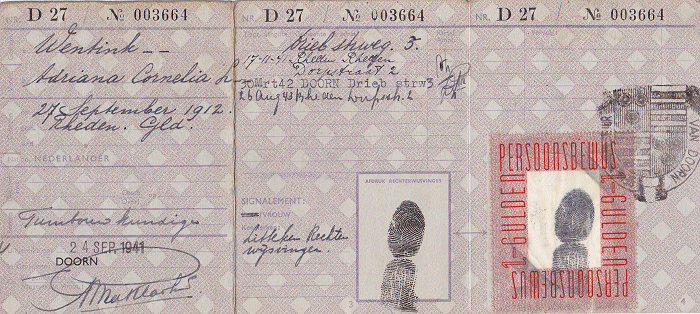 NR. D 27 № 003664
Wentink --
Adriana Cornelia
27 September 1912.
Rheden. Gld.
NEDERLANDER
Tuinbouwkundige
24 SEP. 1941
DOORN
NR. D 27 / № 003664
Driebstrweg. 3.
17-11-41 Rheden Rheden
Dorpstraat 2
30Mrt42 DOORN Drieb strw3
26 Aug 43 Rheden Dorpstr. 2
AFDRUK RECHTERWIJSVINGER
SIGNALEMENT:
VROUW
Litteken Rechter
wijsvinger.
3
NR. D 27 / № 003664
VAN DOORN
PERSOONSBEWIJS
1-GULDEN
1-GULDEN
PERSOONSBEWIJS
4